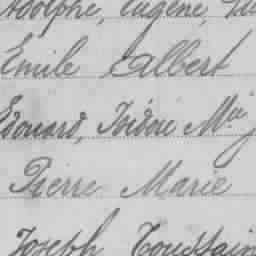 Adolphe, Eugène,
Emile Albert
Edouard, Isidore Mie
Pierre Marie
Joseph Toussain